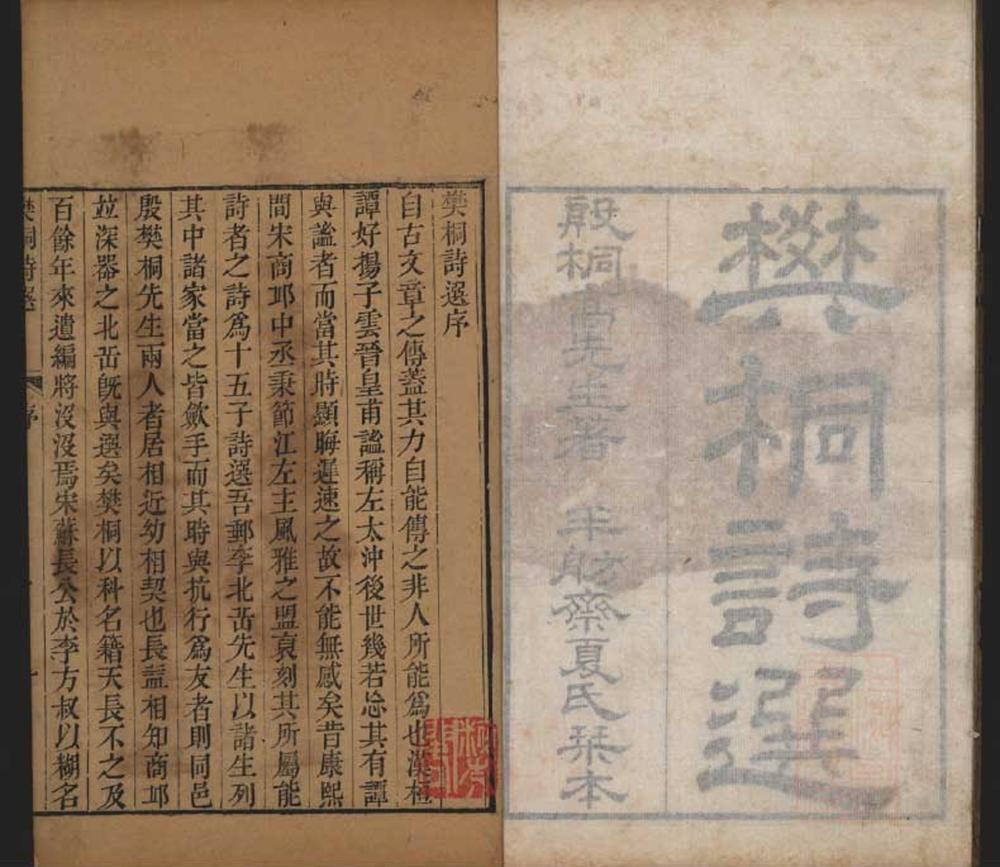 樊桐詩選
殷桐高先生著 半舫齋夏氏栞本
樊桐詩選序
自古文章之傳蓋其力自能傳之非人所能爲也漢桓
譚好揚子雲晉皇甫謐稱左太沖後世幾若忘其有譚
與謐者而當其時顯晦遲速之故不能無感矣昔康熙
間宋商邱中丞秉節江左主風雅之盟裒刻其所屬能
詩者之詩爲十五子詩選吾郵李北岳先生以諸生列
其中諸家當之皆斂手而其時與抗行爲友者則同邑
殷樊桐先生兩人者居相近幼相契也長益相知商邱
並深器之北岳旣與選矣樊桐以科名籍天長不之及
百餘年來遺編將沒沒焉宋蘇長公於李方叔以糊名
樊桐詩選 序 一